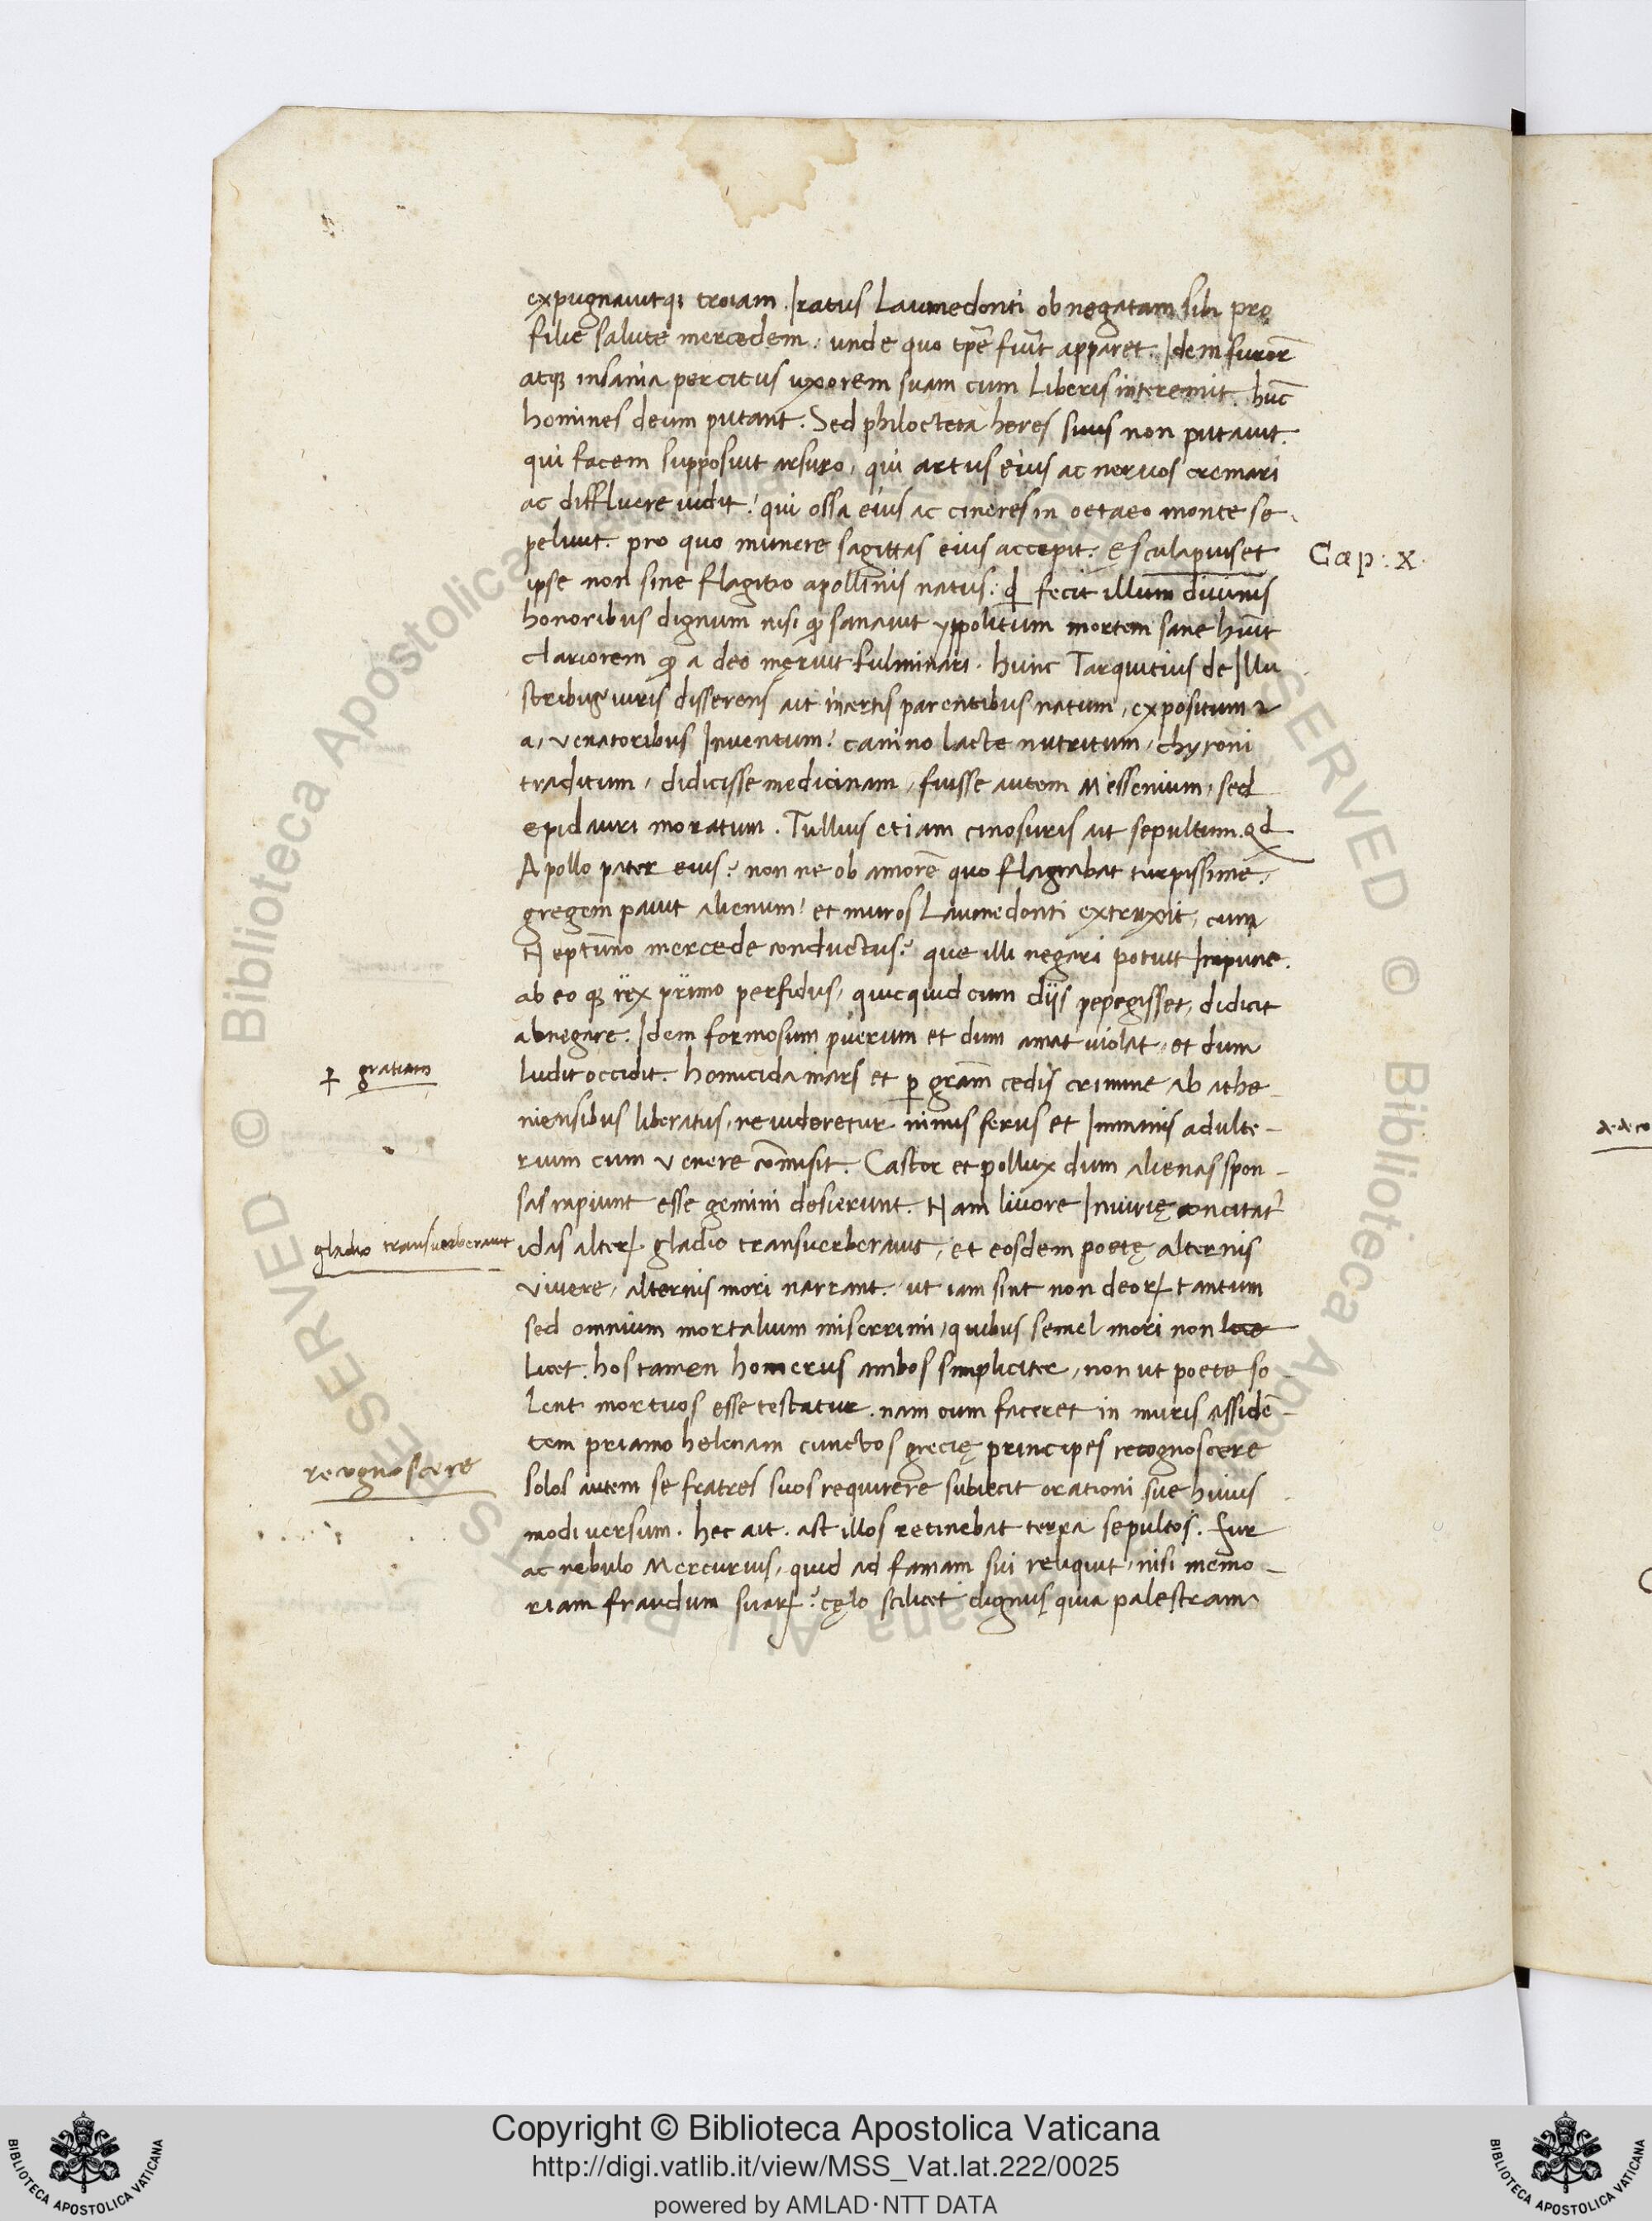 expugnauitq; troiam. Iratus Laumedonti ob negatam sibi pro
filie salute mercedem. unde quo tp̄e fuīt apparet. Idem furor̄
atq; insania percitus uxorem suam cum Liberis interemit. hūc
homines deum putant. Sed philocteta heres suus non putauit.
qui facem supposuit arsuro, qui artus eius ac neruos cremari
ac diffluere uidit! qui ossa eius ac cineres in oetaeo monte se
peliuit. pro quo munere sagittas eius accepit. Esculapius et
Cap: X.
ipse non sine flagitio apollinis natus: qd fecit illum diuinis
honoribus dignum nisi q̄ sanauit yppolitum mortem sane hūit
clariorem q̄ a deo meruit fulminari. hunc Tarquitius de Illu
stribus uiris disserens ait incertis parentibus natum, expositum &
a, venatoribus Inuentum! canino lacte nutritum, chyroni
traditum, didicisse medicinam, fuisse autem Messenium, sed
epidauri moratum. Tullius etiam cinosuris ait sepultum. Qd
Apollo pater eius? non ne ob amorē quo flagrabat turpissime,
gregem pauit alienum! et muros Laumedonti extruxit, cum
Neptūno mercede conductus? que illi negari potuit Inpune.
ab eo q; rex primo perfidus, quicquid cum diis pepegisset, didicit
abnegare. Idem formosum puerum et dum amat uiolat, et dum
ꝑ gratiam
ludit occidit. homicida mars et ꝑ gram̄ cedis crimine ab athe
niensibus liberatus, ne uideretur nimis ferus et Immanis adulte-
rium cum venere com̄isit. Castor et pollux dum alienas spon-
sas rapiunt esse gemini desierunt. Nam liuore Iniurię concitat᷒
gladio transuerberauit
idas alterꝝ gladio transuerberauit, et eosdem poetę alternis
viuere, alternis mori narrant. ut iam sint non deorꝝ tantum
sed omnium mortalium miserrimi, quibus semel mori non lice
licet. hos tamen homerus ambos simpliciter, non ut poete so
lent mortuos esse testatur. nam cum faceret in muris assidē-
tem priamo helenam cunctos gręcię principes recognoscere
recognoscere
solos autem se fratres suos requirere subiecit orationi sue huius
modi uersum. hec ait. ast illos retinebat terra sepultos. fur
ac nebulo Mercurius, quid ad famam sui reliquit, nisi memo-
riam fraudum suarꝝ? cęlo scilicet dignus quia palestram
Copyright © Biblioteca Apostolica Vaticana
http://digi.vatlib.it/view/MSS_Vat.lat.222/0025
powered by AMLAD·NTT DATA
BIBLIOTECA APOSTOLICA VATICANA
BIBLIOTECA APOSTOLICA VATICANA